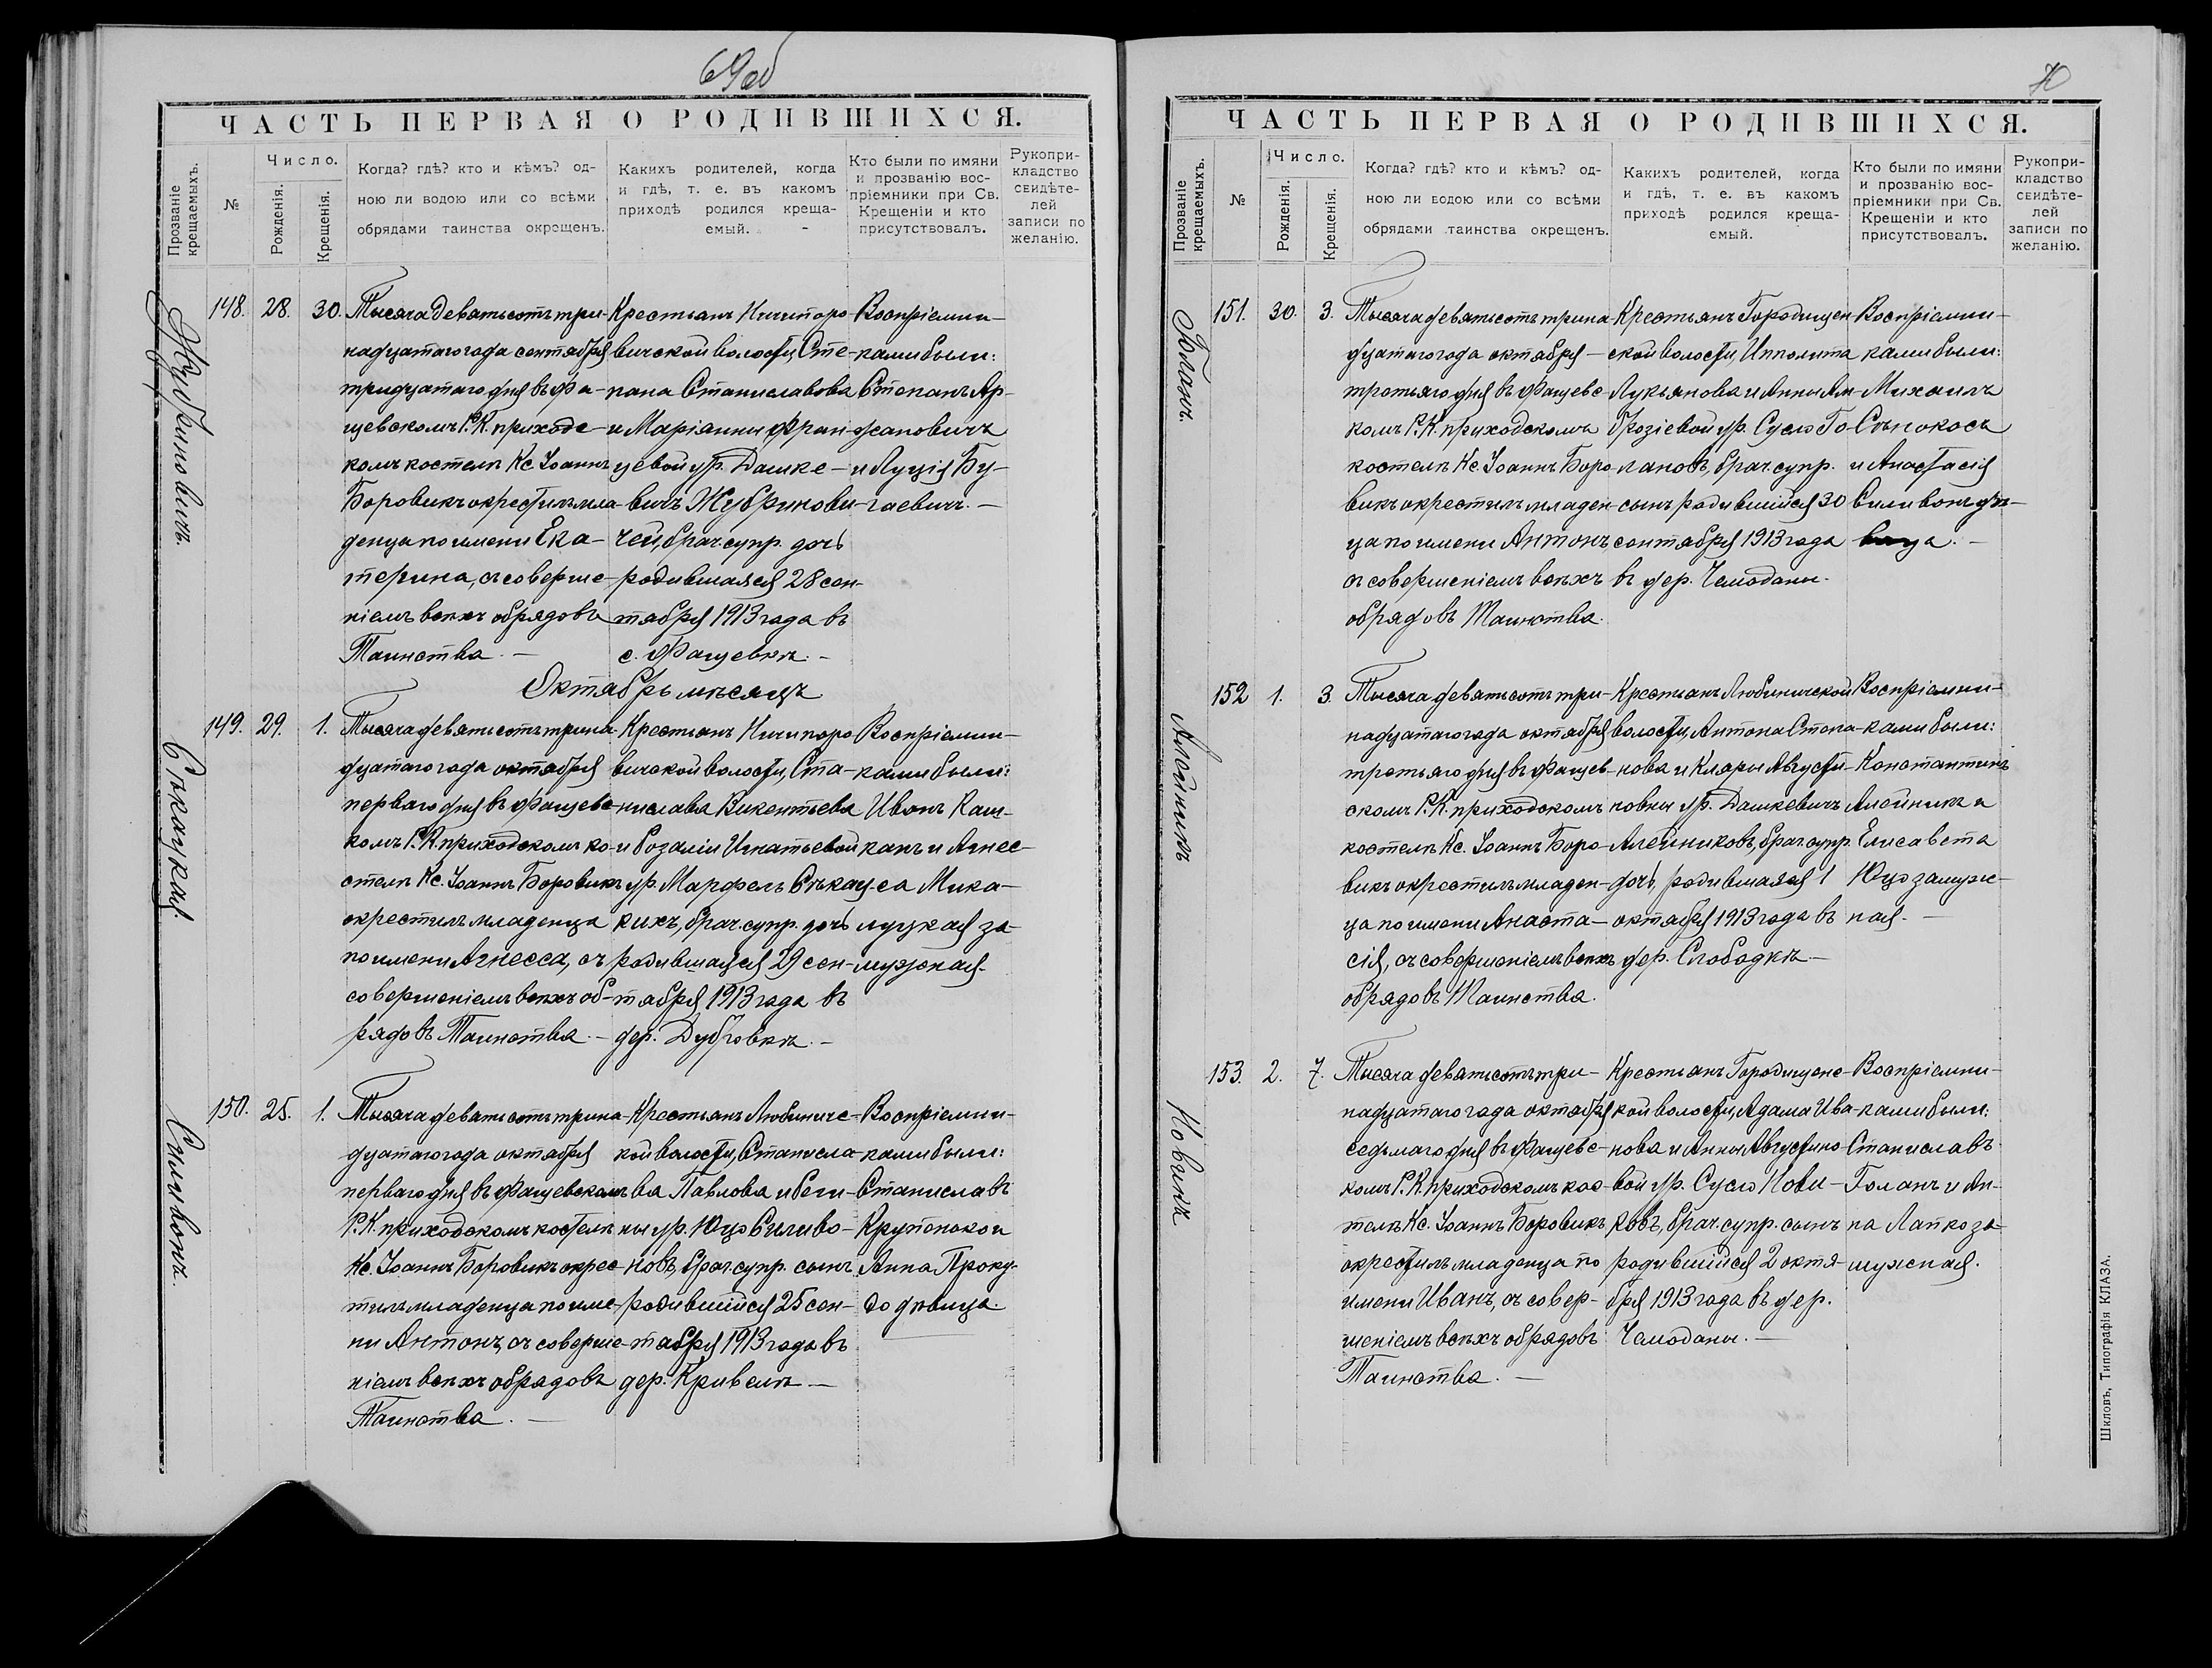 69об
ЧАСТЬ ПЕРВАЯ О РОДИВШИХСЯ.
Прозваніе крещаемыхъ.
№
Число.
Рожденія.
Крещенія.
Когда? гдѣ? кто и кѣмъ? од-
ною ли водою или со всѣми
обрядами таинства окрощенъ.
Какихъ родителей, когда
и гдѣ, т. е. въ какомъ
приходѣ родился креща-
емый. -
Кто были по имяни
и прозванію вос-
пріемники при Св.
Крещеніи и кто
присутствовалъ.
Рукопри-
кладство
свидѣте-
лей
записи по
желанію.
Жубриновичъ.
148. 28. 30.
Тысяча девятьсотъ три-
надцатаго года сентября
тридцатаго дня въ Фа-
щевскомъ Р.К. приходс-
комъ костелѣ Кс. Іоаннъ
Боровикъ окрестилъ мла-
денца по имени Ека-
терина, съ соверше-
ніемъ всѣхъ обрядовъ
Таинства. -
Крестьянъ Ничипоро-
вичской волости, Сте-
пана Станиславова
и Маріанны Фран-
цевой ур. Дашке-
вичъ Жубринови-
чей, брач. супр. дочь
родившаяся 28 сен-
тября 1913 года въ
с. Фащевкѣ. -
Воспріемни-
ками были:
Степанъ Ар-
и Луція Бу-
гаевичъ. -
Октябрь мѣсяцъ
Сѣкацкая.
149. 29. 1.
Тысяча девятьсотъ трина-
дцатаго года октября
перваго дня въ Фащевс-
комъ Р.К. приходскомъ ко-
стелѣ Кс. Іоаннъ Боровикъ
окрестилъ младенца
по имени Агнесса, съ
совершеніемъ всѣхъ об-
рядовъ Таинства. -
Крестьянъ Ничипоро
вичской волости, Ста-
нислава Викентьева
и Розаліи Игнатьевой
ур. Марфель Сѣкац-
кихъ, брач. супр. дочь
родившаяся 29 сен-
тября 1913 года въ
дер. Дубровкѣ. -
Воспріемни-
ками были:
Иванъ Каш-
канъ и Агнес-
са Мика-
луцкая за-
мужная.
Силивонъ.
150. 25. 1.
Тысяча девятьсотъ трина-
дцатаго года октября
перваго дня въ Фащевскомъ
Р.К. приходскомъ костелѣ
Кс. Іоаннъ Боровикъ окрес-
тилъ младенца по име-
ни Антонъ, съ соверше-
ніемъ всѣхъ обрядовъ
Таинства. -
Крестьянъ Любиничс-
кой волости, Станисла-
ва Павлова и Геги-
ны ур. Юцо Силиво-
новъ, брач. супр. сынъ
родившійся 25 сен-
тября 1913 года въ
дер. Кривелѣ -
Воспріемни-
ками были:
Станиславъ
Анна Проку-
до дѣвица.
70
ЧАСТЬ ПЕРВАЯ О РОДИВШИХСЯ.
Прозваніе крещаемыхъ.
№
Число.
Рожденія.
Крещенія.
Когда? гдѣ? кто и кѣмъ? од-
ною ли водою или со всѣми
обрядами таинства окрещенъ.
Какихъ родителей, когда
и гдѣ, т. е. въ какомъ
приходѣ родился креща-
емый.
Кто были по имяни
и прозванію вос-
пріемники при Св.
Крещеніи и кто
присутствовалъ.
Рукопри-
кладство
свидѣте-
лей
записи по
желанію.
Голанъ.
151. 30. 3.
Тысяча девятьсотъ трина-
дцатаго года октября -
третьяго дня въ Фащевс-
комъ Р.К. приходскомъ
костелѣ Кс. Іоаннъ Боро-
викъ окрестилъ младен-
ца по имени Антонъ,
съ совершеніемъ всѣхъ
обрядовъ Таинства.
Крестьянъ Городищен-
ской волости, Ипполита
Лукьянова и Анны Ам-
брозіевой ур. Сусло Го-
лановъ, брач. супр.
сынъ родившійся 30
сентября 1913 года
въ дер. Чемоданы.
Воспріемни-
ками были:
Михаилъ
Сѣнокосъ
и Анастасія
Силивонъ дѣ-
вица. -
Алейникъ
152 1. 3.
Тысяча девятьсотъ три-
надцатаго года октября
третьяго дня въ Фащев-
скомъ Р.К. приходскомъ
костелѣ Кс. Іоаннъ Боро-
викъ окрестилъ младен-
ца по имени Анаста-
сія, съ совершеніемъ всѣхъ
обрядовъ Таинства.
Крестьянъ Любиничской
волости, Антона Степа-
нова и Клары Августи-
новны ур. Дашкевичъ
Алейниковъ, брач. супр.
дочь, родившаяся 1
октября 1913 года въ
дер. Слободкѣ -
Воспріемни-
ками были:
Константинъ
Алейникъ и
Елисавета
Юцо замуж-
ная. -
Новикъ
153. 2. 7.
Тысяча девятьсотъ три-
надцатаго года октября
седьмаго дня въ Фащевс-
комъ Р.К. приходскомъ кос-
телѣ Кс. Іоаннъ Боровикъ
окрестилъ младенца по
имени Иванъ, съ совер-
шеніемъ всѣхъ обрядовъ
Таинства. -
Крестьянъ Городищенс-
кой волости, Адама Ива-
нова и Анны Августино-
вой ур. Сусло Нови-
ковъ, брач. супр. сынъ
родившійся 2 октя-
бря 1913 года въ дер.
Чемоданы. -
Воспріемни-
ками были:
Станиславъ
Голанъ и Ан-
на Лапко за-
мужная.
Шкловъ, Типографія КЛАЗА.